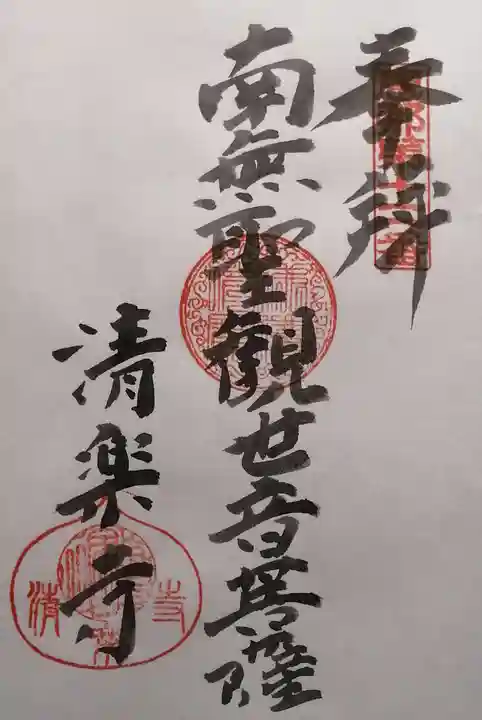 奉拜
南無聖觀世音菩薩
清楽寺